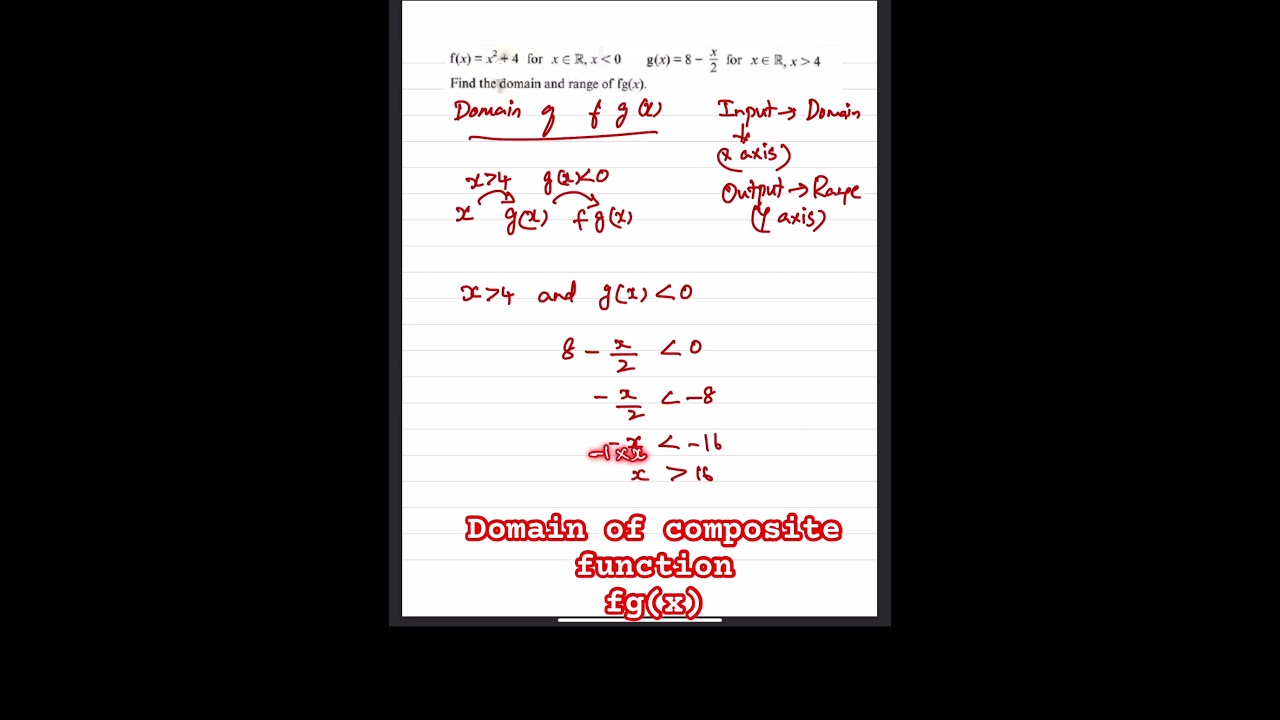 f(x) = x² + 4 for x ∈ ℝ, x < 0 g(x) = 8 − x/2 for x ∈ ℝ, x > 4
Find the domain and range of fg(x).
Domain of f g(x)
Input → Domain
↓
(x axis)
Output → Range
(Y axis)
x>4 g(x)<0
x g(x) f g(x)
x>4 and g(x) < 0
8 − x/2 < 0
− x/2 < −8
− x < −16
−1 × x
x > 16
Domain of composite
function
fg(x)